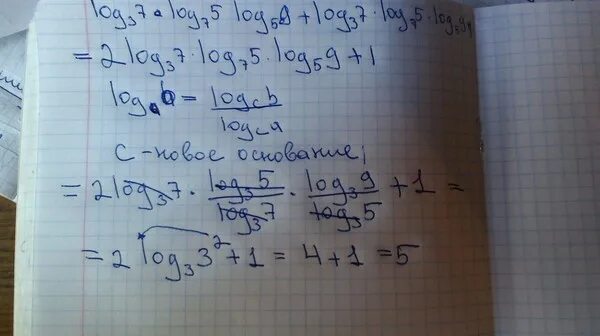 log₃7 · log₇5 log₅9 + log₃7 · log₇5 · log₅9
= 2log₃7 · log₇5 · log₅9 + 1
logₐb = log_c b / log_c a
c - новое основание,
= 2log₃7 · log₃5 / log₃7 · log₃9 / log₃5 + 1 =
= 2 log₃3² + 1 = 4 + 1 = 5